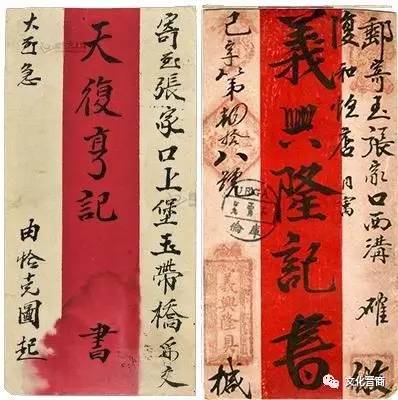 寄至張家口上堡玉帶橋交
天復亨記 書
大可急
由拾克圖起
郵寄至張家口西溝 確
復和恒店
義興隆記書
己字第拾八號 椷
URGA
庫倫
義興隆具
文化晋商